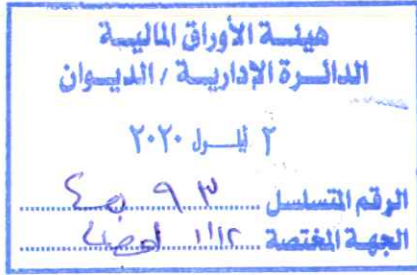 هيئة الأوراق المالية
الدائرة الإدارية / الديوان
٢ أيلول ٢٠٢٠
الرقم المتسلسل ٣ ٩
الجهة المختصة